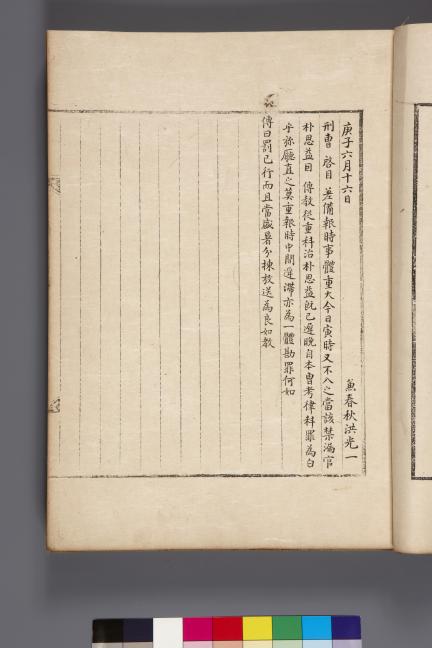 庚子六月十六日 兼春秋洪光一
刑曹 啓目 差備報時事體重大今日寅時又不入之當該禁漏官
朴思益目 傳敎從重科治朴思益旣已遲晩自本曹考律科罪爲白
乎旀廳直之莫重報時中間遲滯亦爲一體勘罪何如
傳曰罰已行而且當盛暑分揀放送爲良如敎